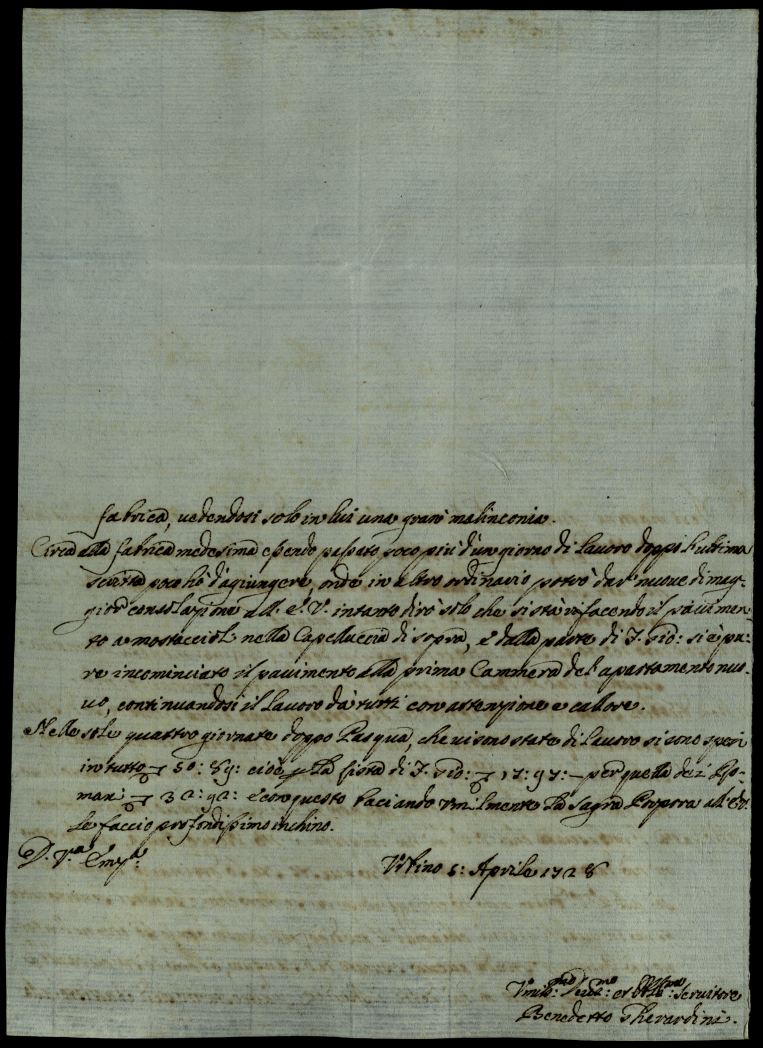 fabrica, vedendosi solo in lui una gran malinconia.
Circa alla fabrica medesima essendo passato poco più d'un giorno di Lauoro doppo l'ultima
scritta poco hò d'agiungere, onde in altro ordinario potrò dar' nuoue di mag-
gior consolazione all' E: V: intanto dirò solo che si stà rifacendo il pauimen-
to a mostaccioli nella Capelluccia di sopra, e dalla parte di S. Gio: si è pu-
re incominciato il pauimento alla prima Cammera del' apartamento nuo-
uo, continuandosi il Lauoro da tutti con attenzione e calore.
Nelle sole quattro giornate doppo Pasqua, che ui sono state di lauoro si sono spesi
in tutto 50: 89: cioè La lista di S. Gio: 17: 97:— per quella de i Ro-
mani 32: 92: e con questo baciando Vmilmente La Sagra Porpora all' E. V.
Le faccio profondissimo inchino.
D. V.ra Em.za
Vrbino 5: Aprile 1728
Vmil:mo Deu:mo et Obl:mo Seruitore
Benedetto Gherardini.